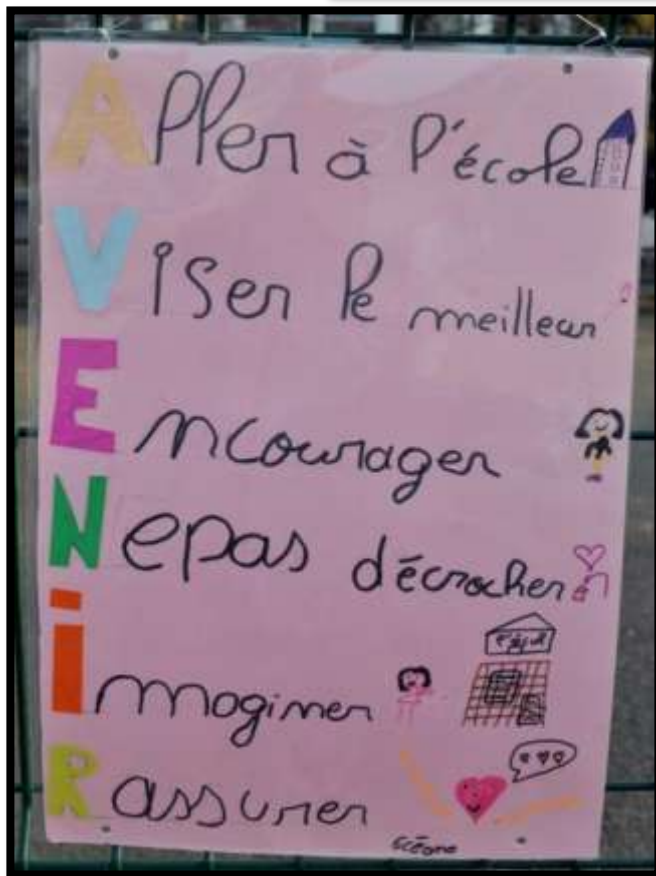 Aller à l'école
Viser le meilleur
Encourager
Ne pas décrocher
imaginer
Rassurer